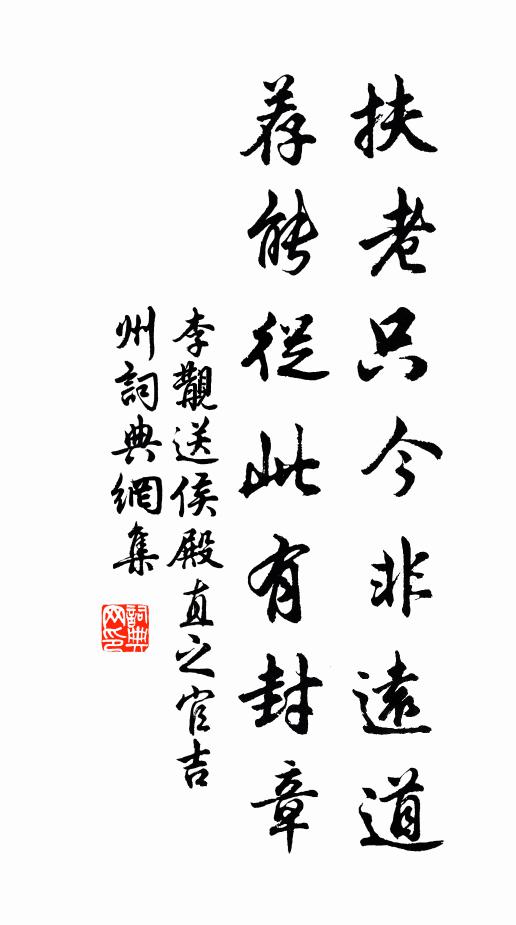 扶老只今非遠道
荐能從此有封章
李覯送侯殿直之官吉
州詞典網集
詞典网印